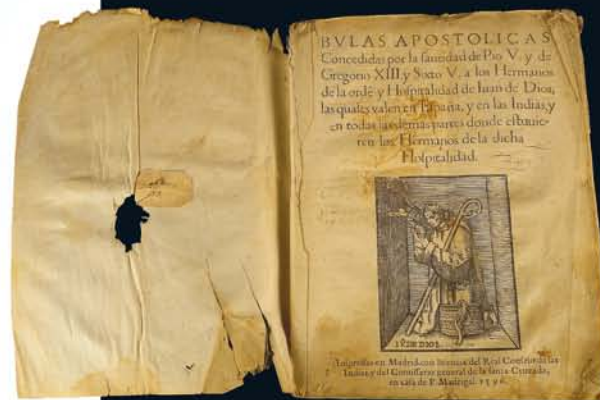 BVLAS APOSTOLICAS
Concedidas por la santidad de Pio V. y de
Gregorio XIII. y Sixto V. a los Hermanos
de la ordē y Hospitalidad de Iuan de Dios,
las quales valen en España, y en las Indias, y
en todas las demas partes donde estuuie-
ren los Hermanos de la dicha
Hospitalidad.
IV. DE DIOS
Impressas en Madrid con licencia del Real Consejo de las
Indias, y del Comissario general de la santa Cruzada,
en casa de P. Madrigal. 1596.